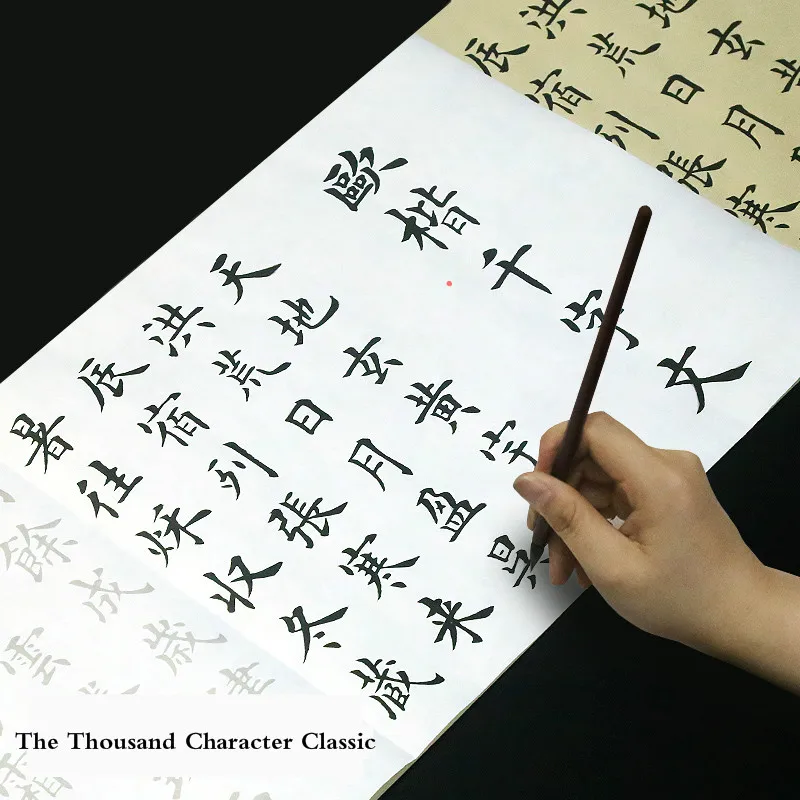 歐楷千字文
天地玄黄宇
洪荒日月盈昃
辰宿列張寒来
暑往秌收冬藏
餘成歲律
雲
地玄黄
洪荒日月
辰宿列張寒
The Thousand Character Classic